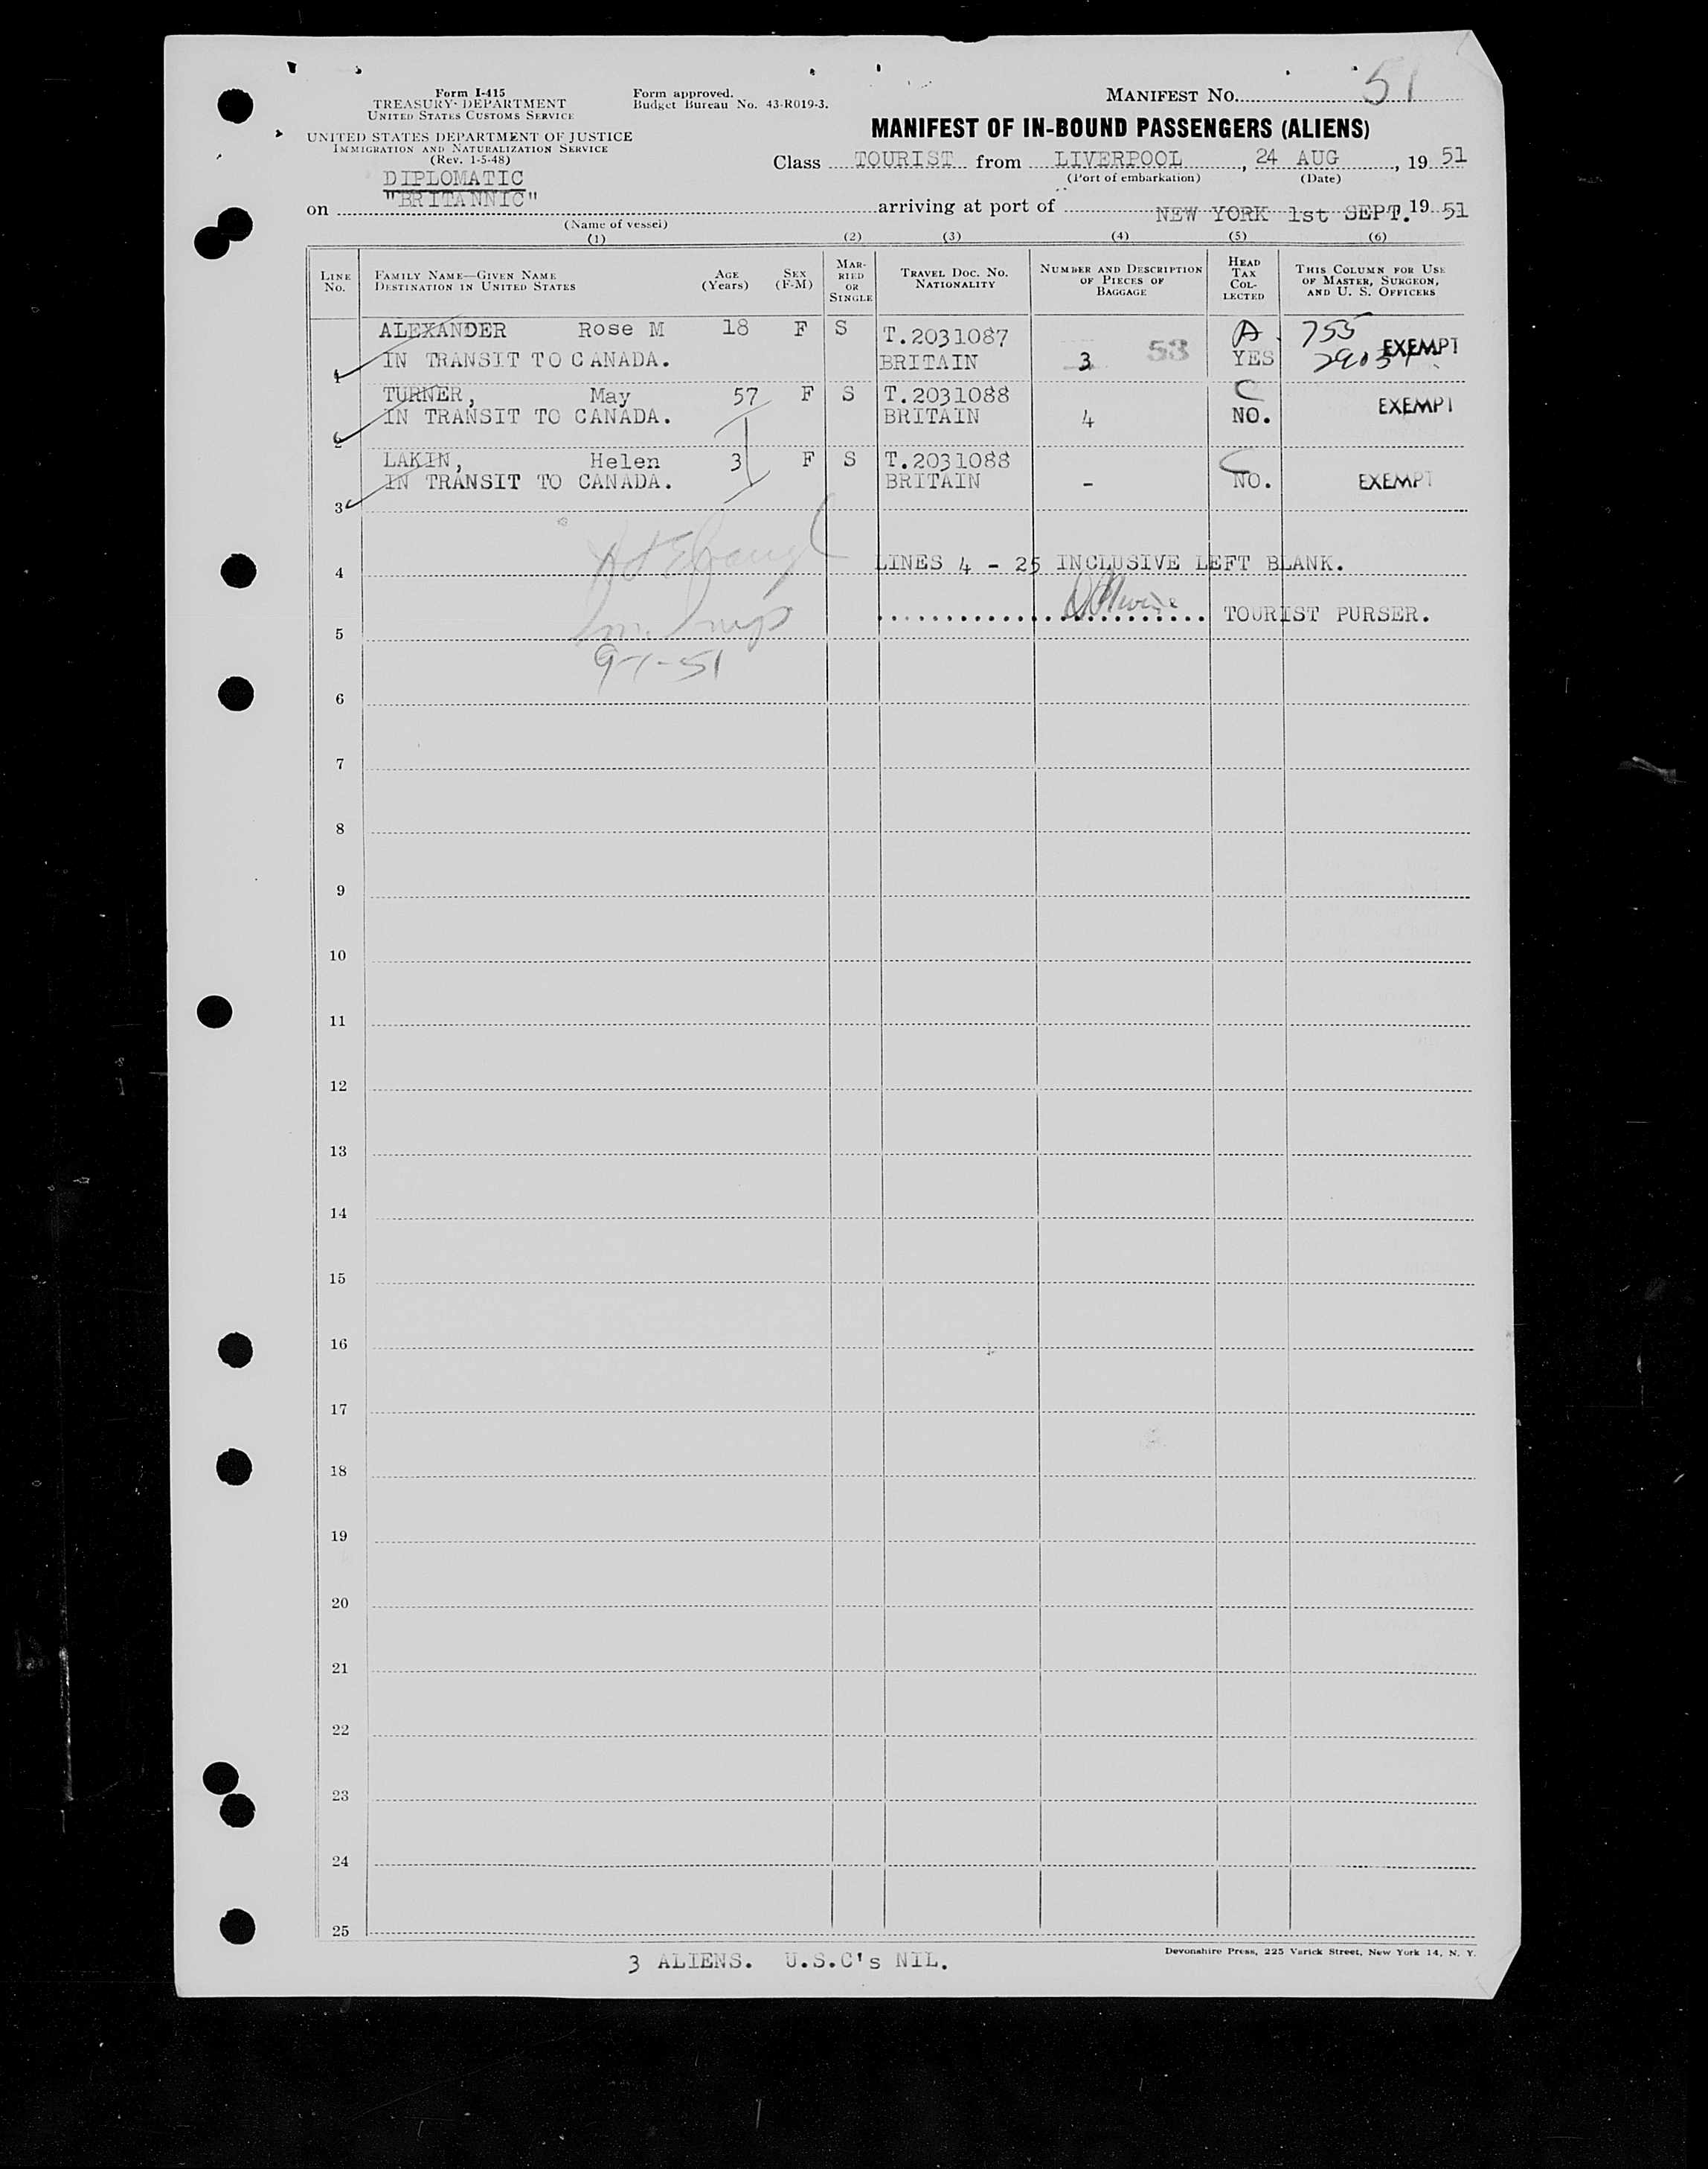 Form I-415
TREASURY DEPARTMENT
UNITED STATES CUSTOMS SERVICE
UNITED STATES DEPARTMENT OF JUSTICE
IMMIGRATION AND NATURALIZATION SERVICE
(Rev. 1-5-48)
Form approved.
Budget Bureau No. 43-R019-3.
MANIFEST NO. 51
MANIFEST OF IN-BOUND PASSENGERS (ALIENS)
Class TOURIST from LIVERPOOL, 24 AUG, 19 51
(Port of embarkation) (Date)
DIPLOMATIC
on "BRITANNIC" arriving at port of NEW YORK 1st SEPT. 19 51
(Name of vessel)
(1) (2) (3) (4) (5) (6)
LINE NO. FAMILY NAME—GIVEN NAME DESTINATION IN UNITED STATES AGE (Years) SEX (F-M) MARRIED OR SINGLE TRAVEL DOC. NO. NATIONALITY NUMBER AND DESCRIPTION OF PIECES OF BAGGAGE HEAD TAX COLLECTED THIS COLUMN FOR USE OF MASTER, SURGEON, AND U. S. OFFICERS
ALEXANDER Rose M 18 F S T.2031087 A 755
1 IN TRANSIT TO CANADA. BRITAIN 3 53 YES EXEMPT
TURNER, May 57 F S T.2031088 C
2 IN TRANSIT TO CANADA. BRITAIN 4 NO. EXEMPT
LAKIN, Helen 3 F S T.2031088 C
3 IN TRANSIT TO CANADA. BRITAIN - NO. EXEMPT
4 LINES 4 - 25 INCLUSIVE LEFT BLANK.
5 TOURIST PURSER.
9-1-51
6
7
8
9
10
11
12
13
14
15
16
17
18
19
20
21
22
23
24
25
3 ALIENS. U.S.C's NIL.
Devonshire Press, 225 Varick Street, New York 14, N. Y.